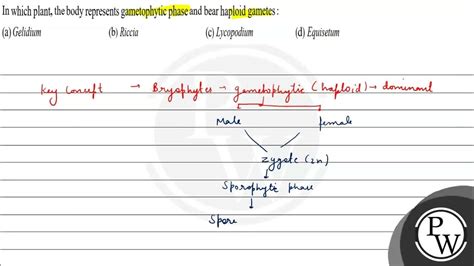 In which plant, the body represents gametophytic phase and bear haploid gametes :
(a) Gelidium (b) Riccia (c) Lycopodium (d) Equisetum
Key Concept → Bryophytes → gametophytic (haploid) → dominant
Male female
zygote (2n)
Sporophytic phase
Spore
P
W
P
W